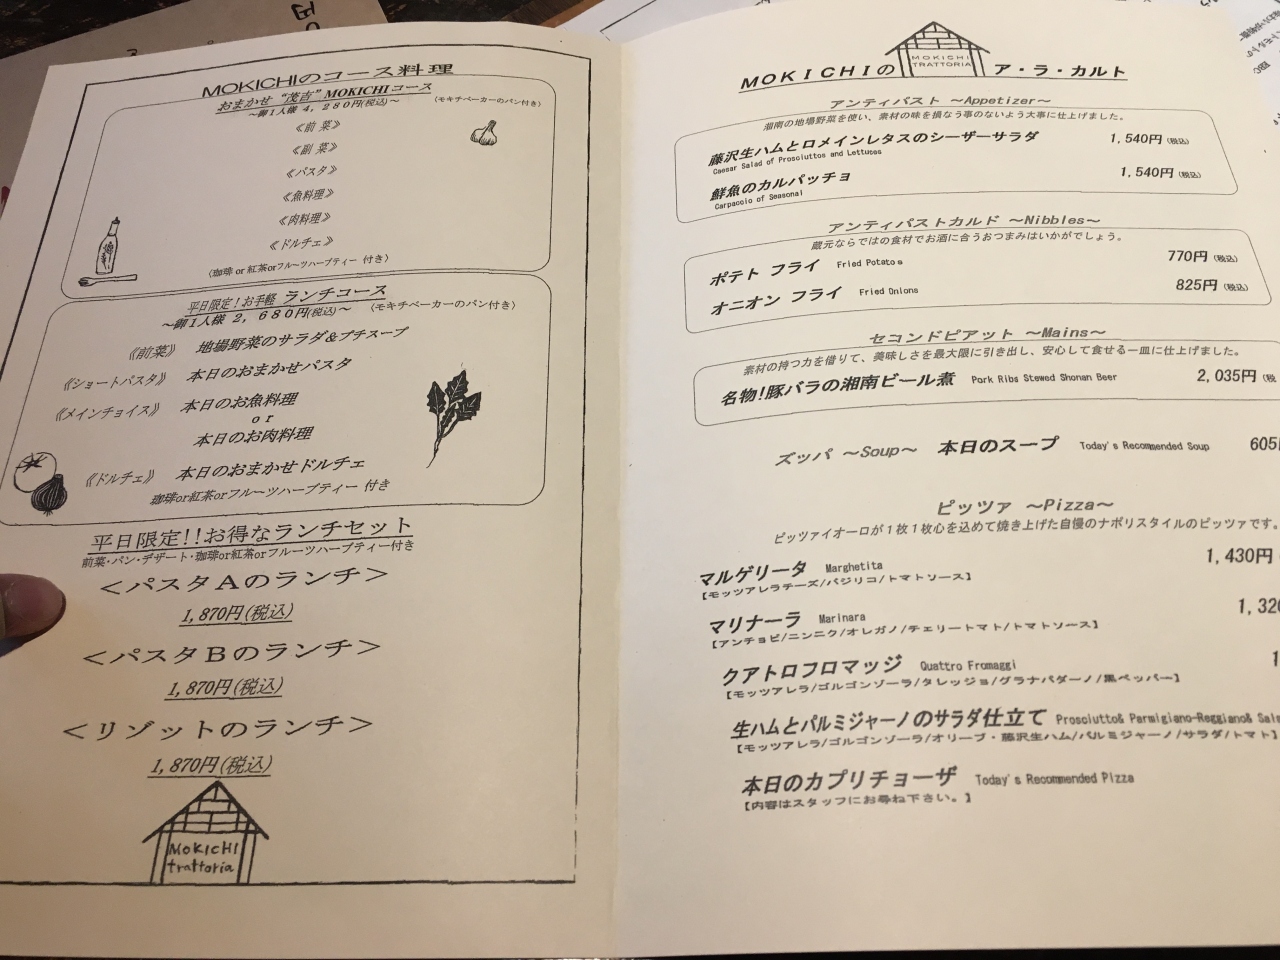 MOKICHIのコース料理
おまかせ “茂吉” MOKICHIコース
～御1人様 4,280円(税込)～ (モキチベーカーのパン付き)
《前 菜》
《副 菜》
《パスタ》
《魚料理》
《肉料理》
《ドルチェ》
(珈琲 or 紅茶orフルーツハーブティー 付き)
平日限定！お手軽 ランチコース
～御1人様 2,680円(税込)～ (モキチベーカーのパン付き)
《前菜》 地場野菜のサラダ&プチスープ
《ショートパスタ》 本日のおまかせパスタ
《メインチョイス》 本日のお魚料理
or
本日のお肉料理
《ドルチェ》 本日のおまかせドルチェ
珈琲or紅茶orフルーツハーブティー 付き
平日限定!!お得なランチセット
前菜・パン・デザート・珈琲or紅茶orフルーツハーブティー付き
＜パスタAのランチ＞
1,870円(税込)
＜パスタBのランチ＞
1,870円(税込)
＜リゾットのランチ＞
1,870円(税込)
MOKICHI
trattoria
MOKICHIの MOKICHI TRATTORIA ア・ラ・カルト
アンティパスト ～Appetizer～
湘南の地場野菜を使い、素材の味を損なう事のないよう大事に仕上げました。
藤沢生ハムとロメインレタスのシーザーサラダ 1,540円(税込)
Caesar Salad of Prosciuttos and Lettuces
鮮魚のカルパッチョ 1,540円(税込)
Carpaccio of Seasonal
アンティパストカルド ～Nibbles～
蔵元ならではの食材でお酒に合うおつまみはいかがでしょう。
ポテト フライ Fried Potatoe 770円(税込)
オニオン フライ Fried Onions 825円(税込)
セコンドピアット ～Mains～
素材の持つ力を借りて、美味しさを最大限に引き出し、安心して食せる一皿に仕上げました。
名物!豚バラの湘南ビール煮 Pork Ribs Stewed Shonan Beer 2,035円(税
ズッパ ～Soup～ 本日のスープ Today's Recommended Soup 605円
ピッツァ ～Pizza～
ピッツァイオーロが1枚1枚心を込めて焼き上げた自慢のナポリスタイルのピッツァです。
マルゲリータ Marghetita 1,430円
【モッツアレラチーズ/バジリコ/トマトソース】
マリナーラ Marinara 1,320
【アンチョビ/ニンニク/オレガノ/チェリートマト/トマトソース】
クアトロフロマッジ Quattro Fromaggi 1
【モッツアレラ/ゴルゴンゾーラ/タレッジョ/グラナパダーノ/黒ペッパー】
生ハムとパルミジャーノのサラダ仕立て Prosciutto& Parmigiano-Reggiano& Sal
【モッツアレラ/ゴルゴンゾーラ/オリーブ・藤沢生ハム/パルミジャーノ/サラダ/トマト】
本日のカプリチョーザ Today's Recommended Pizza
【内容はスタッフにお尋ね下さい。】